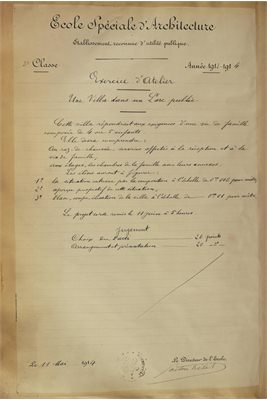 Ecole Spéciale d'Architecture
Etablissement, reconnu d'utilité publique.
2e Classe
Année 1913-1914
Exercice d'Atelier
Une Villa dans un Parc public
Cette villa répondrait aux exigences d'une vie de famille
composée de 4 ou 5 enfants
Elle devra comprendre:
Au rez de chaussée, services affectés à la réception et à la
vie de famille,
aux étages, les chambres de la famille avec leurs annexes.
1°
la situation
à l'échelle de
2°
aperçu perspectif de cette situation,
3°
plan, coupe, élévation de la villa à l'échelle de
Le projet sera remis le 11 juin à 5 heures
Jugement
Choix du Parti 20 points
Arrangement et présentation 20 -"-
Le 11 Mai 1914
Le Directeur de l'Ecole